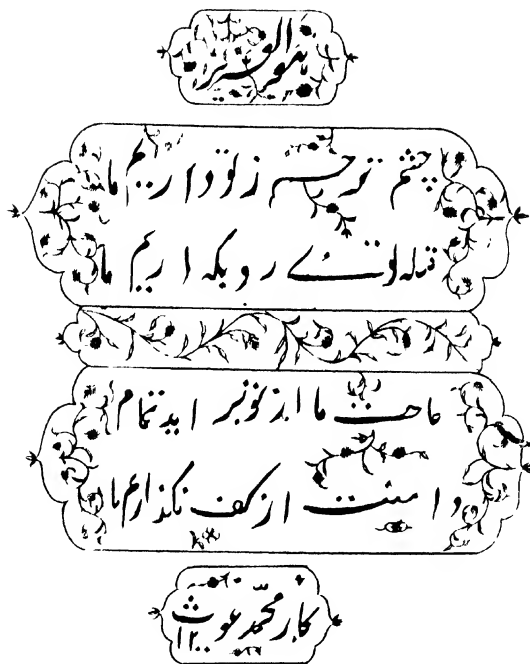 هو العزیز
چشم ترحم ز تو داریم ما
قبله توئے رو بکه اریم ما
حاجت ما از تو بر اید تمام
دامنت از کف نگذاریم ما
کار محمّد غوث
۱۲۰۰